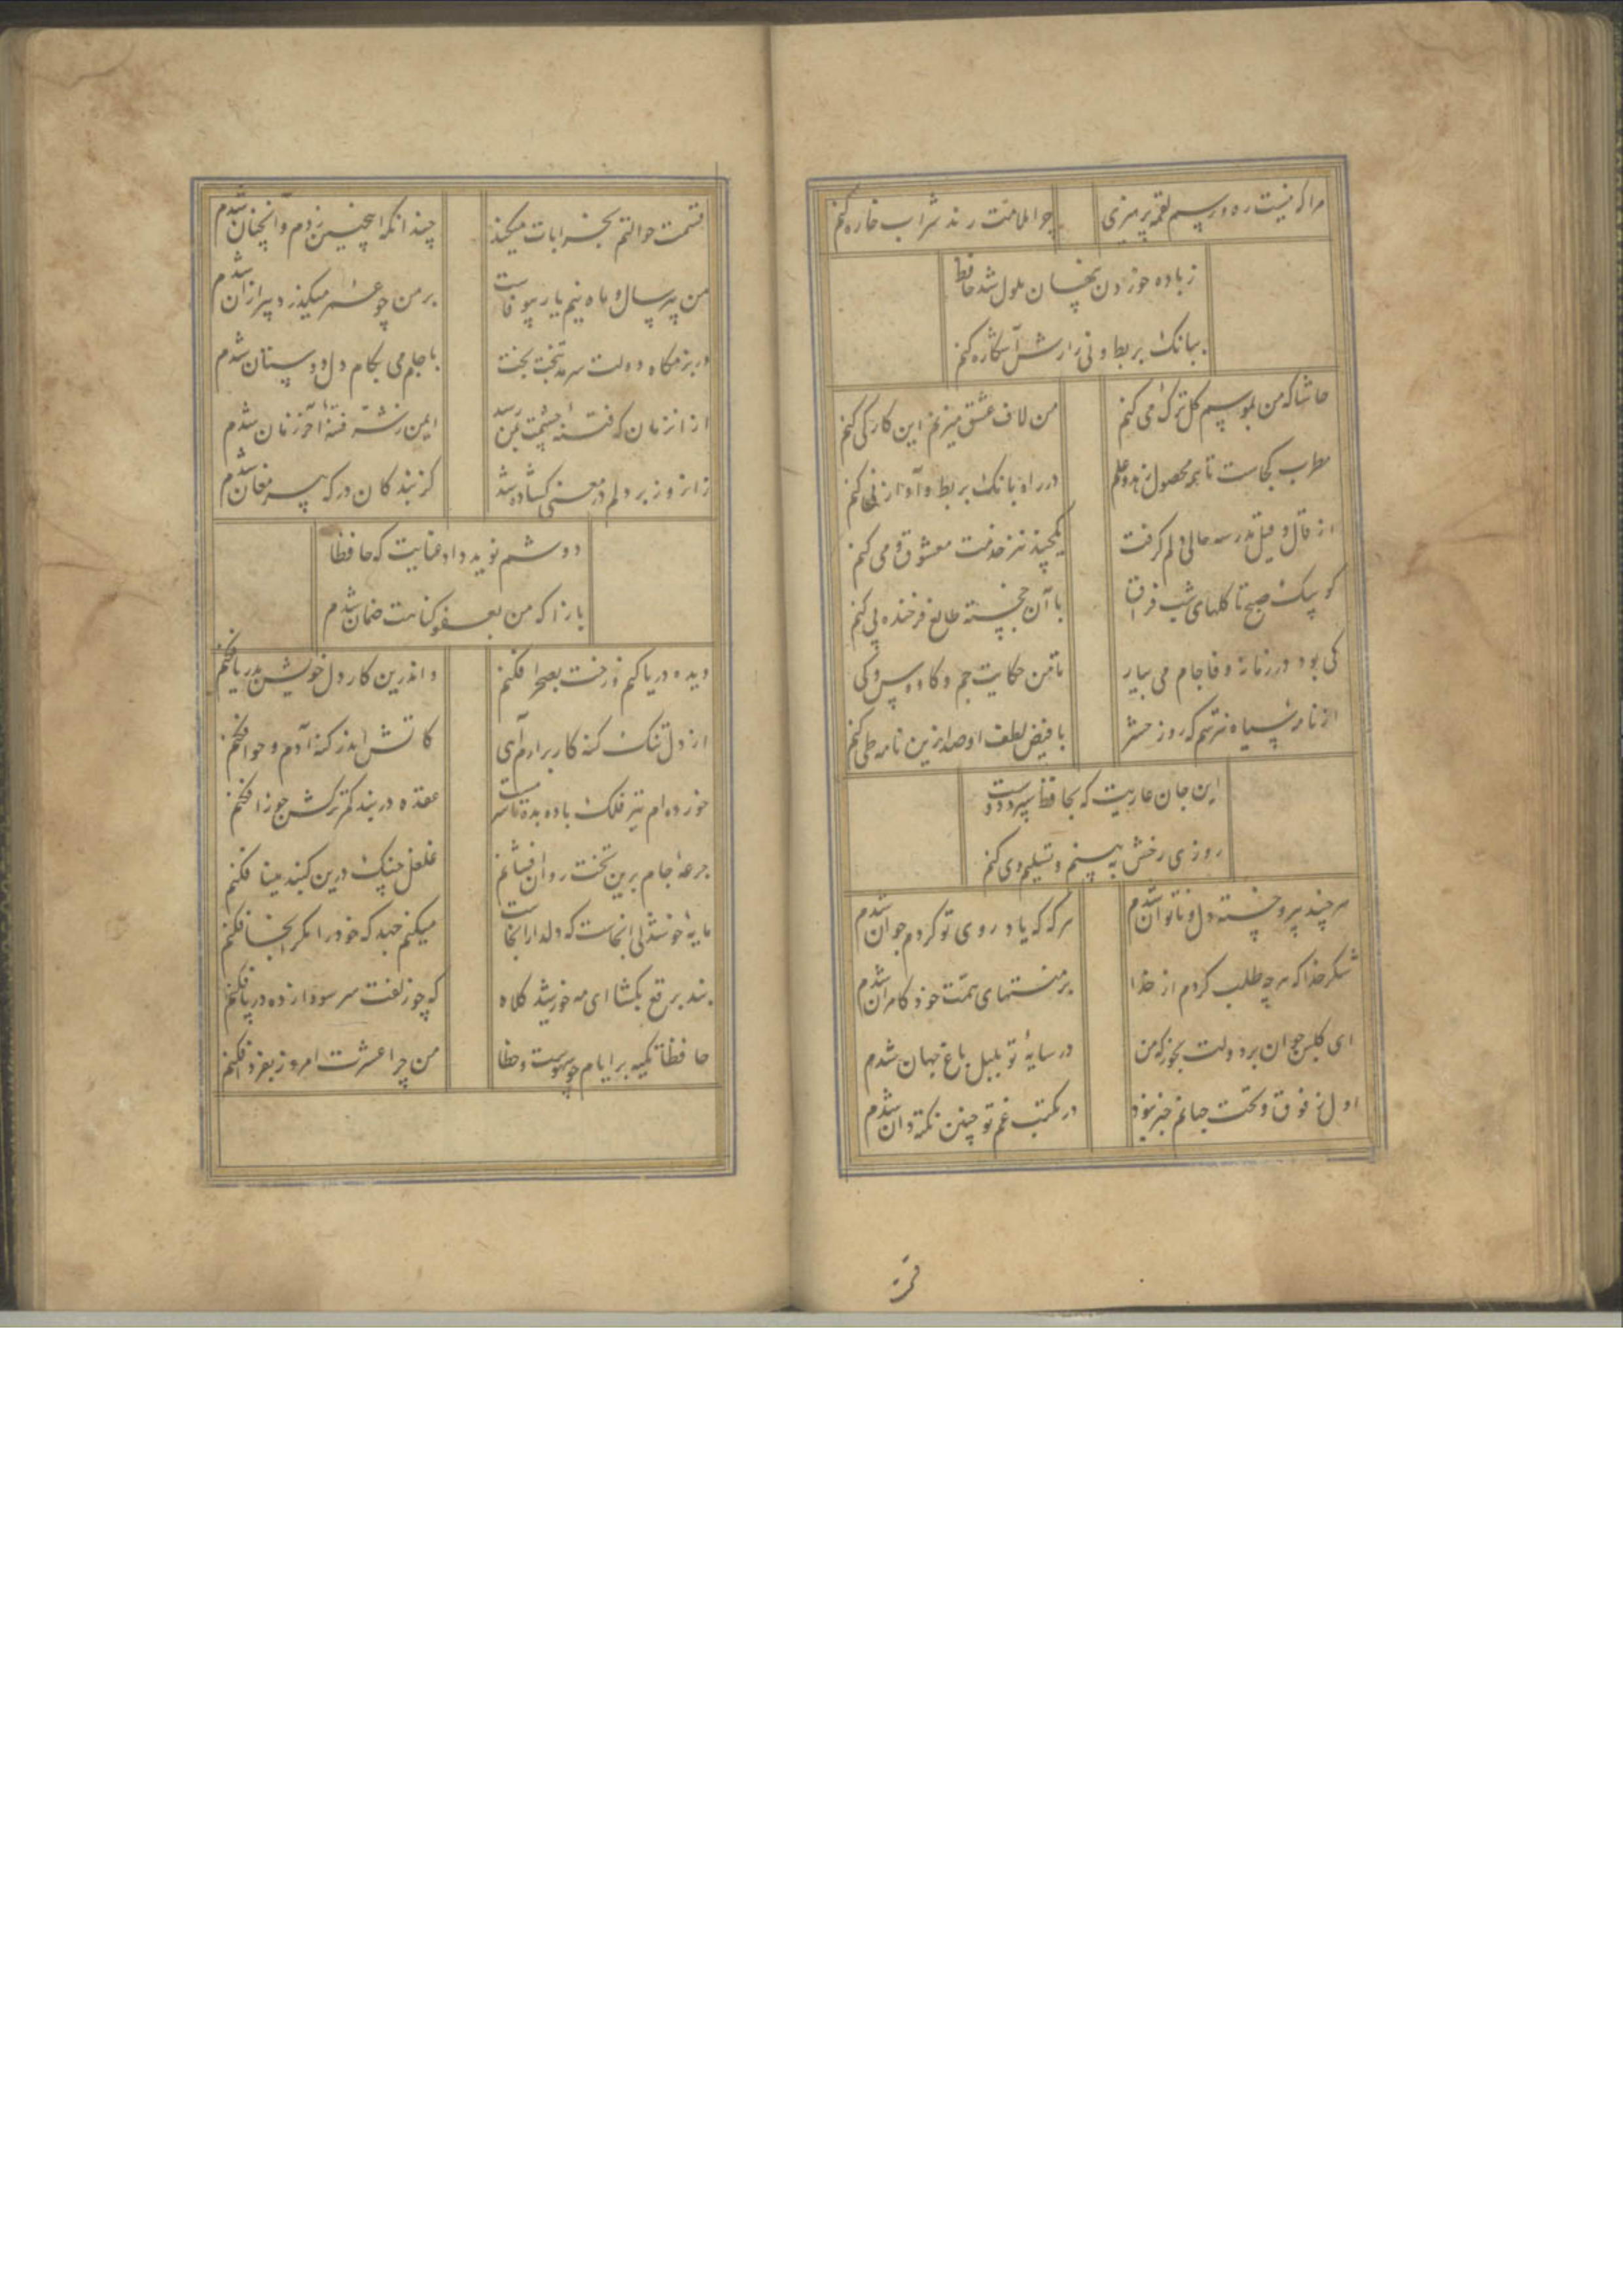 مرا که نیست ره و رسم لقمه پرهیزی چرا ملامت رند شرابخاره کنم
ز باده خوردن پنهان ملول شد حافظ
ببانک بربط و نی رازش آشکاره کنم
حاشا که من بموسم کل ترک می کنم من لاف عشق میزنم این کار کی کنم
مطرب کجاست تا همه محصول زهد و علم در راه بانک بربط و آواز نی کنم
از قال و قیل مدرسه حالی دلم کرفت یکچند نیز خدمت معشوق و می کنم
کو پیک صبح تا کلهای شب فراق با آن خجسته طالع فرخنده پی کنم
کی بود در زمانه وفا جام می بیار تا من حکایت جم و کاوس و کی کنم
از نامه سیاه نترسم که روز حشر با فیض لطف او صد ازین نامه طی کنم
این جان عاریت که بحافظ سپرد دوست
روزی رخش به بینم و تسلیم وی کنم
هر چند پیر و خسته دل و ناتوان شدم هر که که یاد روی تو کردم جوان شدم
شکر خدا که هر چه طلب کردم از خدا بر منتهای همت خود کامران شدم
ای کلبن جوان بر دولت بخور که من در سایهٔ تو بلبل باغ جهان شدم
اول ز فوق و تحت جهانم خبر نبود در مکتب غم تو چنین نکته دان شدم
قسمت حوالتم بخرابات میکند چندانکه اینچنین زدم و آنچنان شدم
من پیر سال و ماه نیم یار بیوفاست بر من چو عمر میکذرد پیر از آن شدم
در بزمکاه دولت سرمد بتخت بخت با جام می بکام دل دوستان شدم
از آن زمان که فتنهٔ چشمت بمن رسید ایمن ز شر فتنهٔ آخر زمان شدم
زانروز بر دلم در معنی کشاده شد کز بندکان درکه پیر مغان شدم
دوشم نوید داد عنایت که حافظا
باز آ که من بعفو کناهت ضمان شدم
دیده دریا کنم و رخت بصحرا فکنم و اندرین کار دل خویش بدریا فکنم
از دل تنک کنه کار برارم آهی کاتش اندر کنه آدم و حوا فکنم
خورده ام تیر فلک باده بده تا سرمست عقده در بند کمر ترکش جوزا فکنم
جرعهٔ جام برین تخت روان افشانم غلغل چنک درین کنبد مینا فکنم
مایهٔ خوشدلی انجاست که دلدار انجاست میکنم جهد که خود را مکر انجا فکنم
بند برقع بکشا ای مه خورشید کلاه که چو زلفت سر سودازده در پا فکنم
حافظا تکیه بر ایام چو سهوست و خطا من چرا عشرت امروز بفردا فکنم